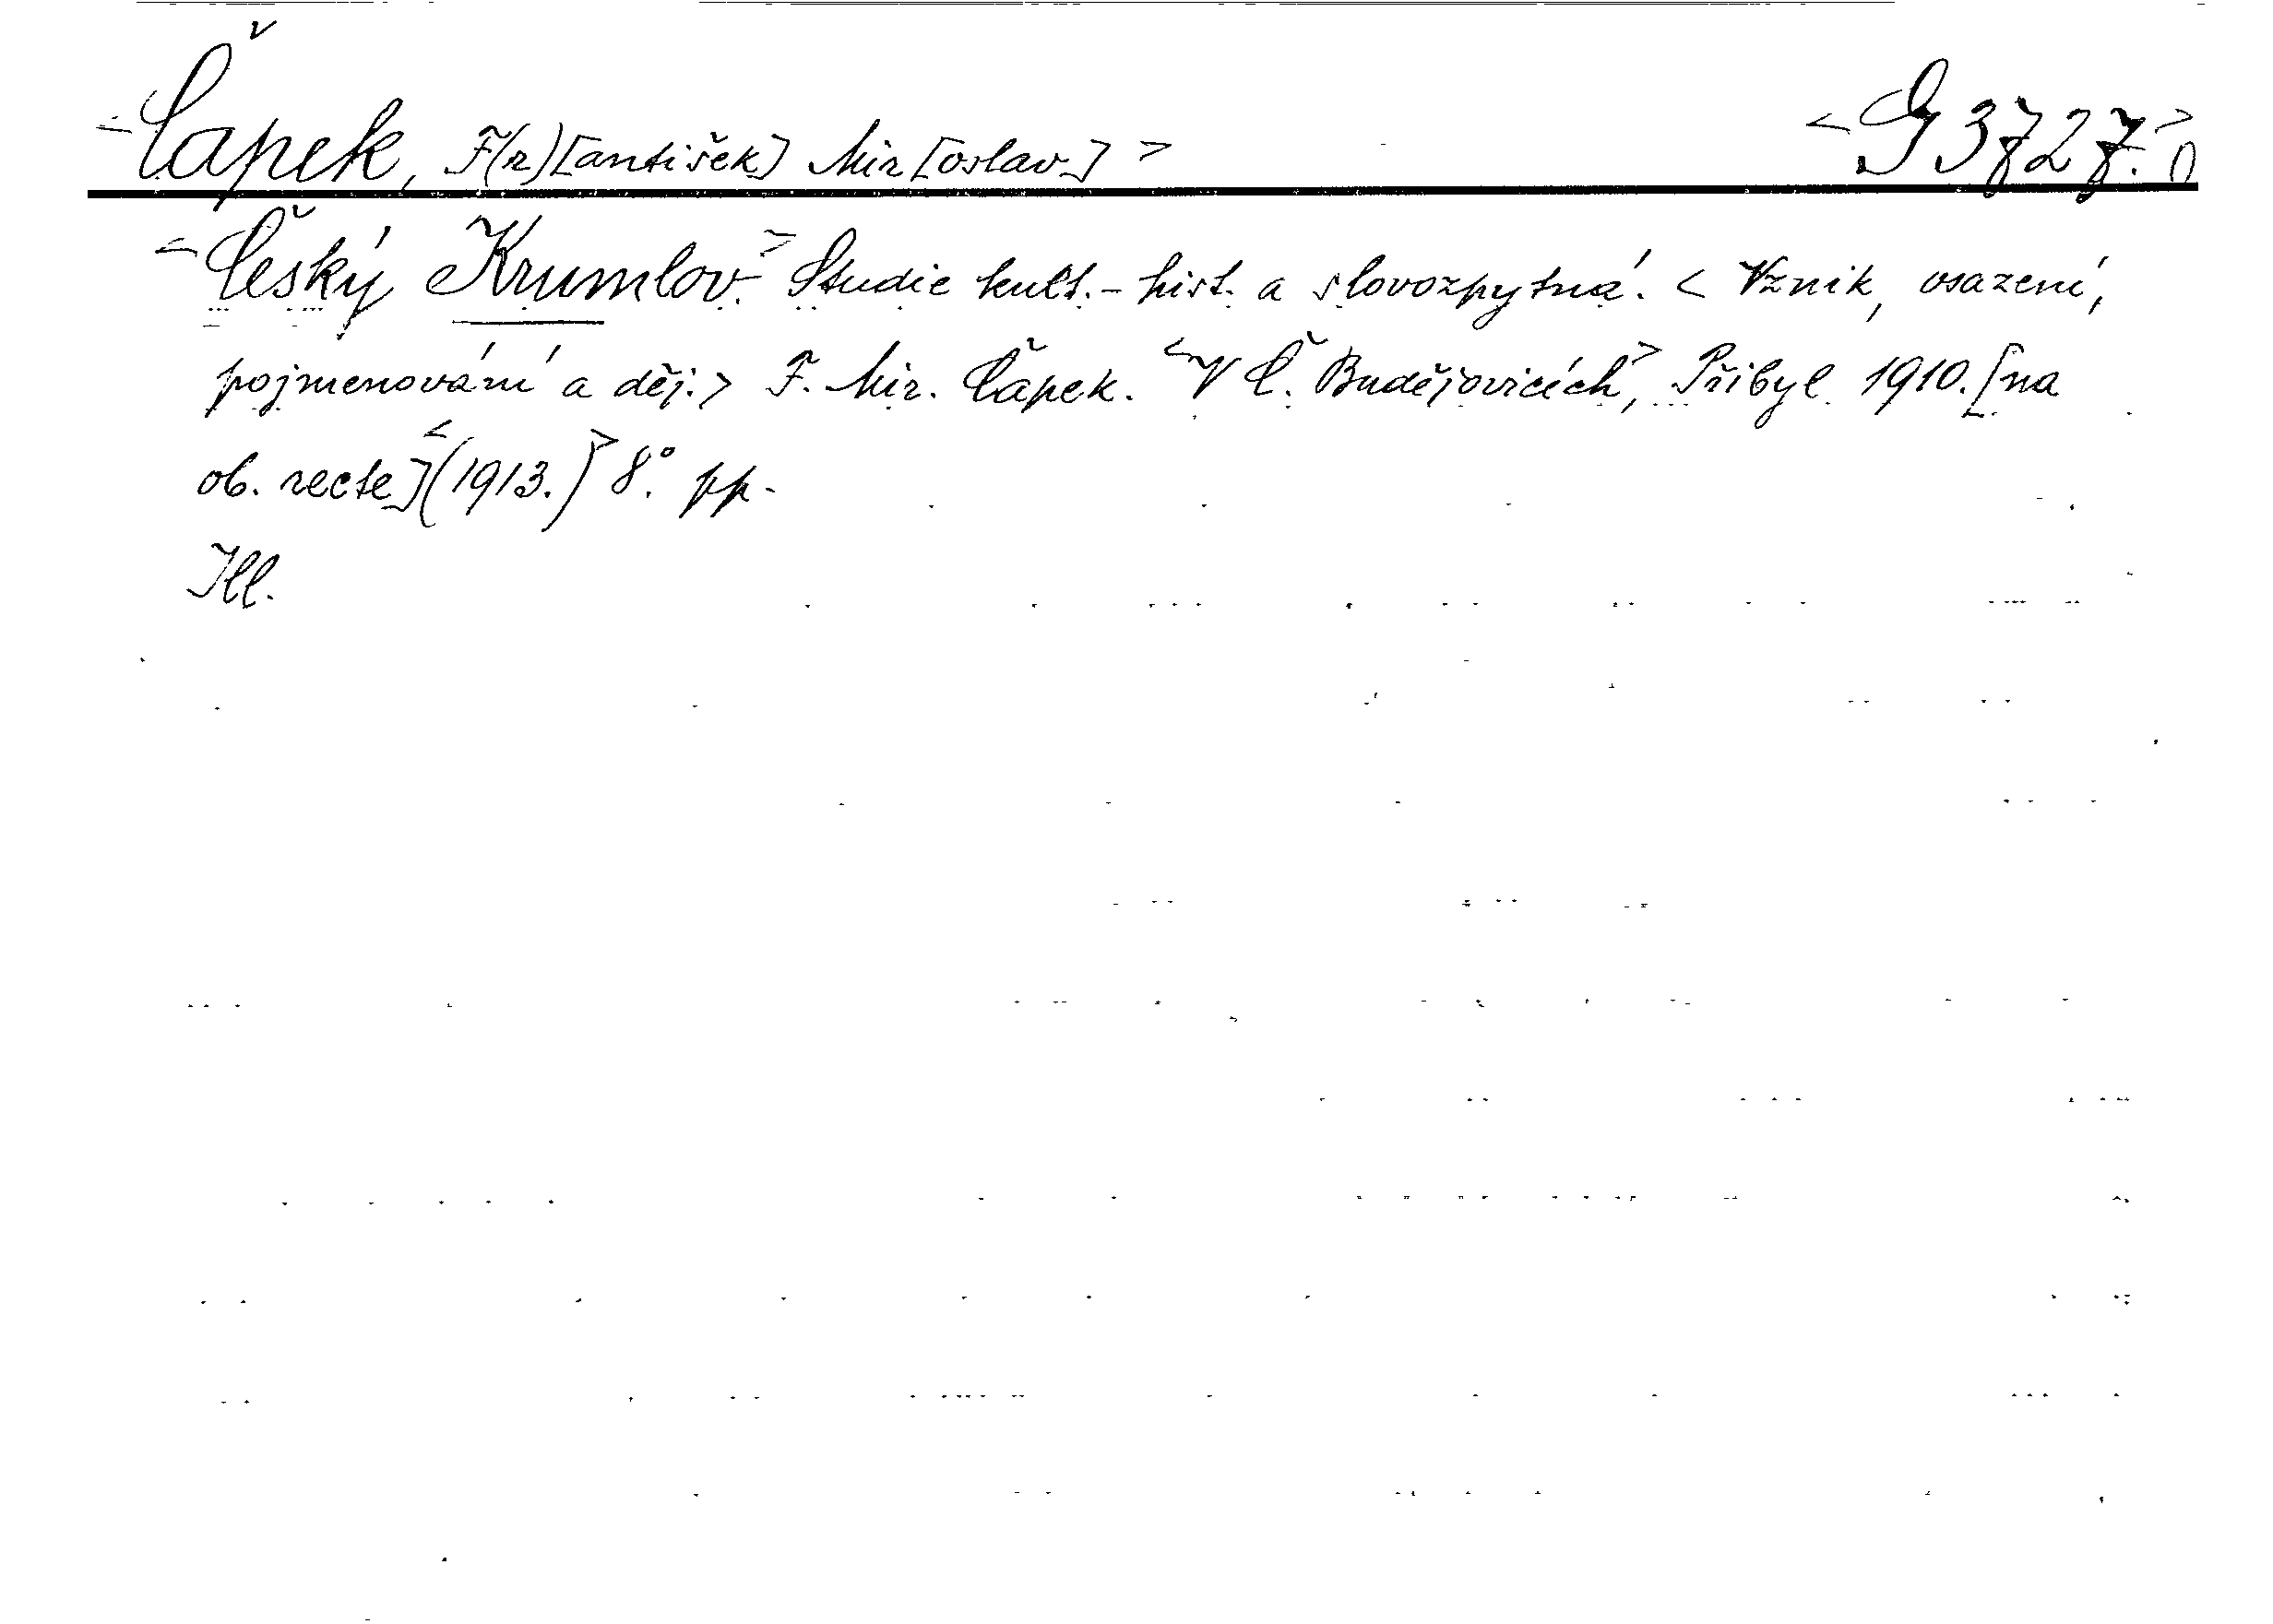 <Čapek, F(r)[antišek] Mir[oslav]> <G 3727.>
<Český Krumlov.> Studie kult.-hist. a slovozpytná. <Vznik, osazení,
pojmenování a děj.> F. Mir. Čapek. <V Č. Budějovicích>, Přibyl 1910. [na
ob. recte] <(1913.)> 8°. pp.
Ill.